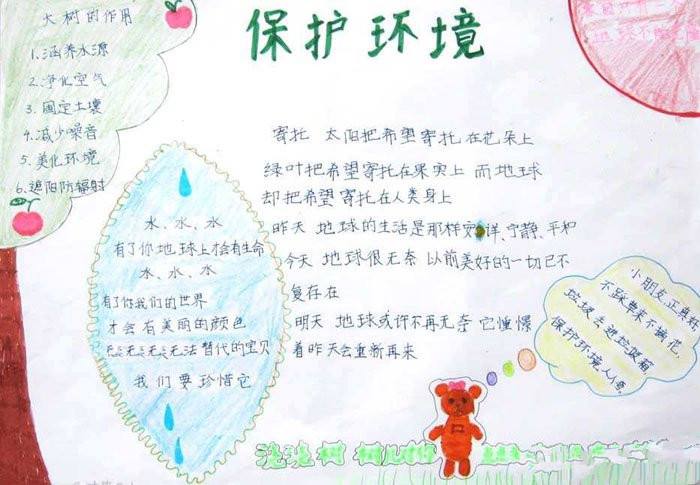 保护环境
大树的作用
1.涵养水源
2.净化空气
3.固定土壤
4.减少噪音
5.美化环境
6.遮阳防辐射
寄托 太阳把希望寄托在花朵上
绿叶把希望寄托在果实上 而地球
却把希望寄托在人类身上
昨天 地球的生活是那样安详、宁静、平和
今天 地球很无奈 以前美好的一切已不
复存在
明天 地球或许不再无奈 它憧憬
着昨天会重新再来
水、水、水
有了你地球上才会有生命
水、水、水
有了你我们的世界
才会有美丽的颜色
无法替代的宝贝
我们要珍惜它
小朋友,正真好
不踩草来不摘花,
垃圾去进垃圾箱
保护环境人人
浇浇树 树儿